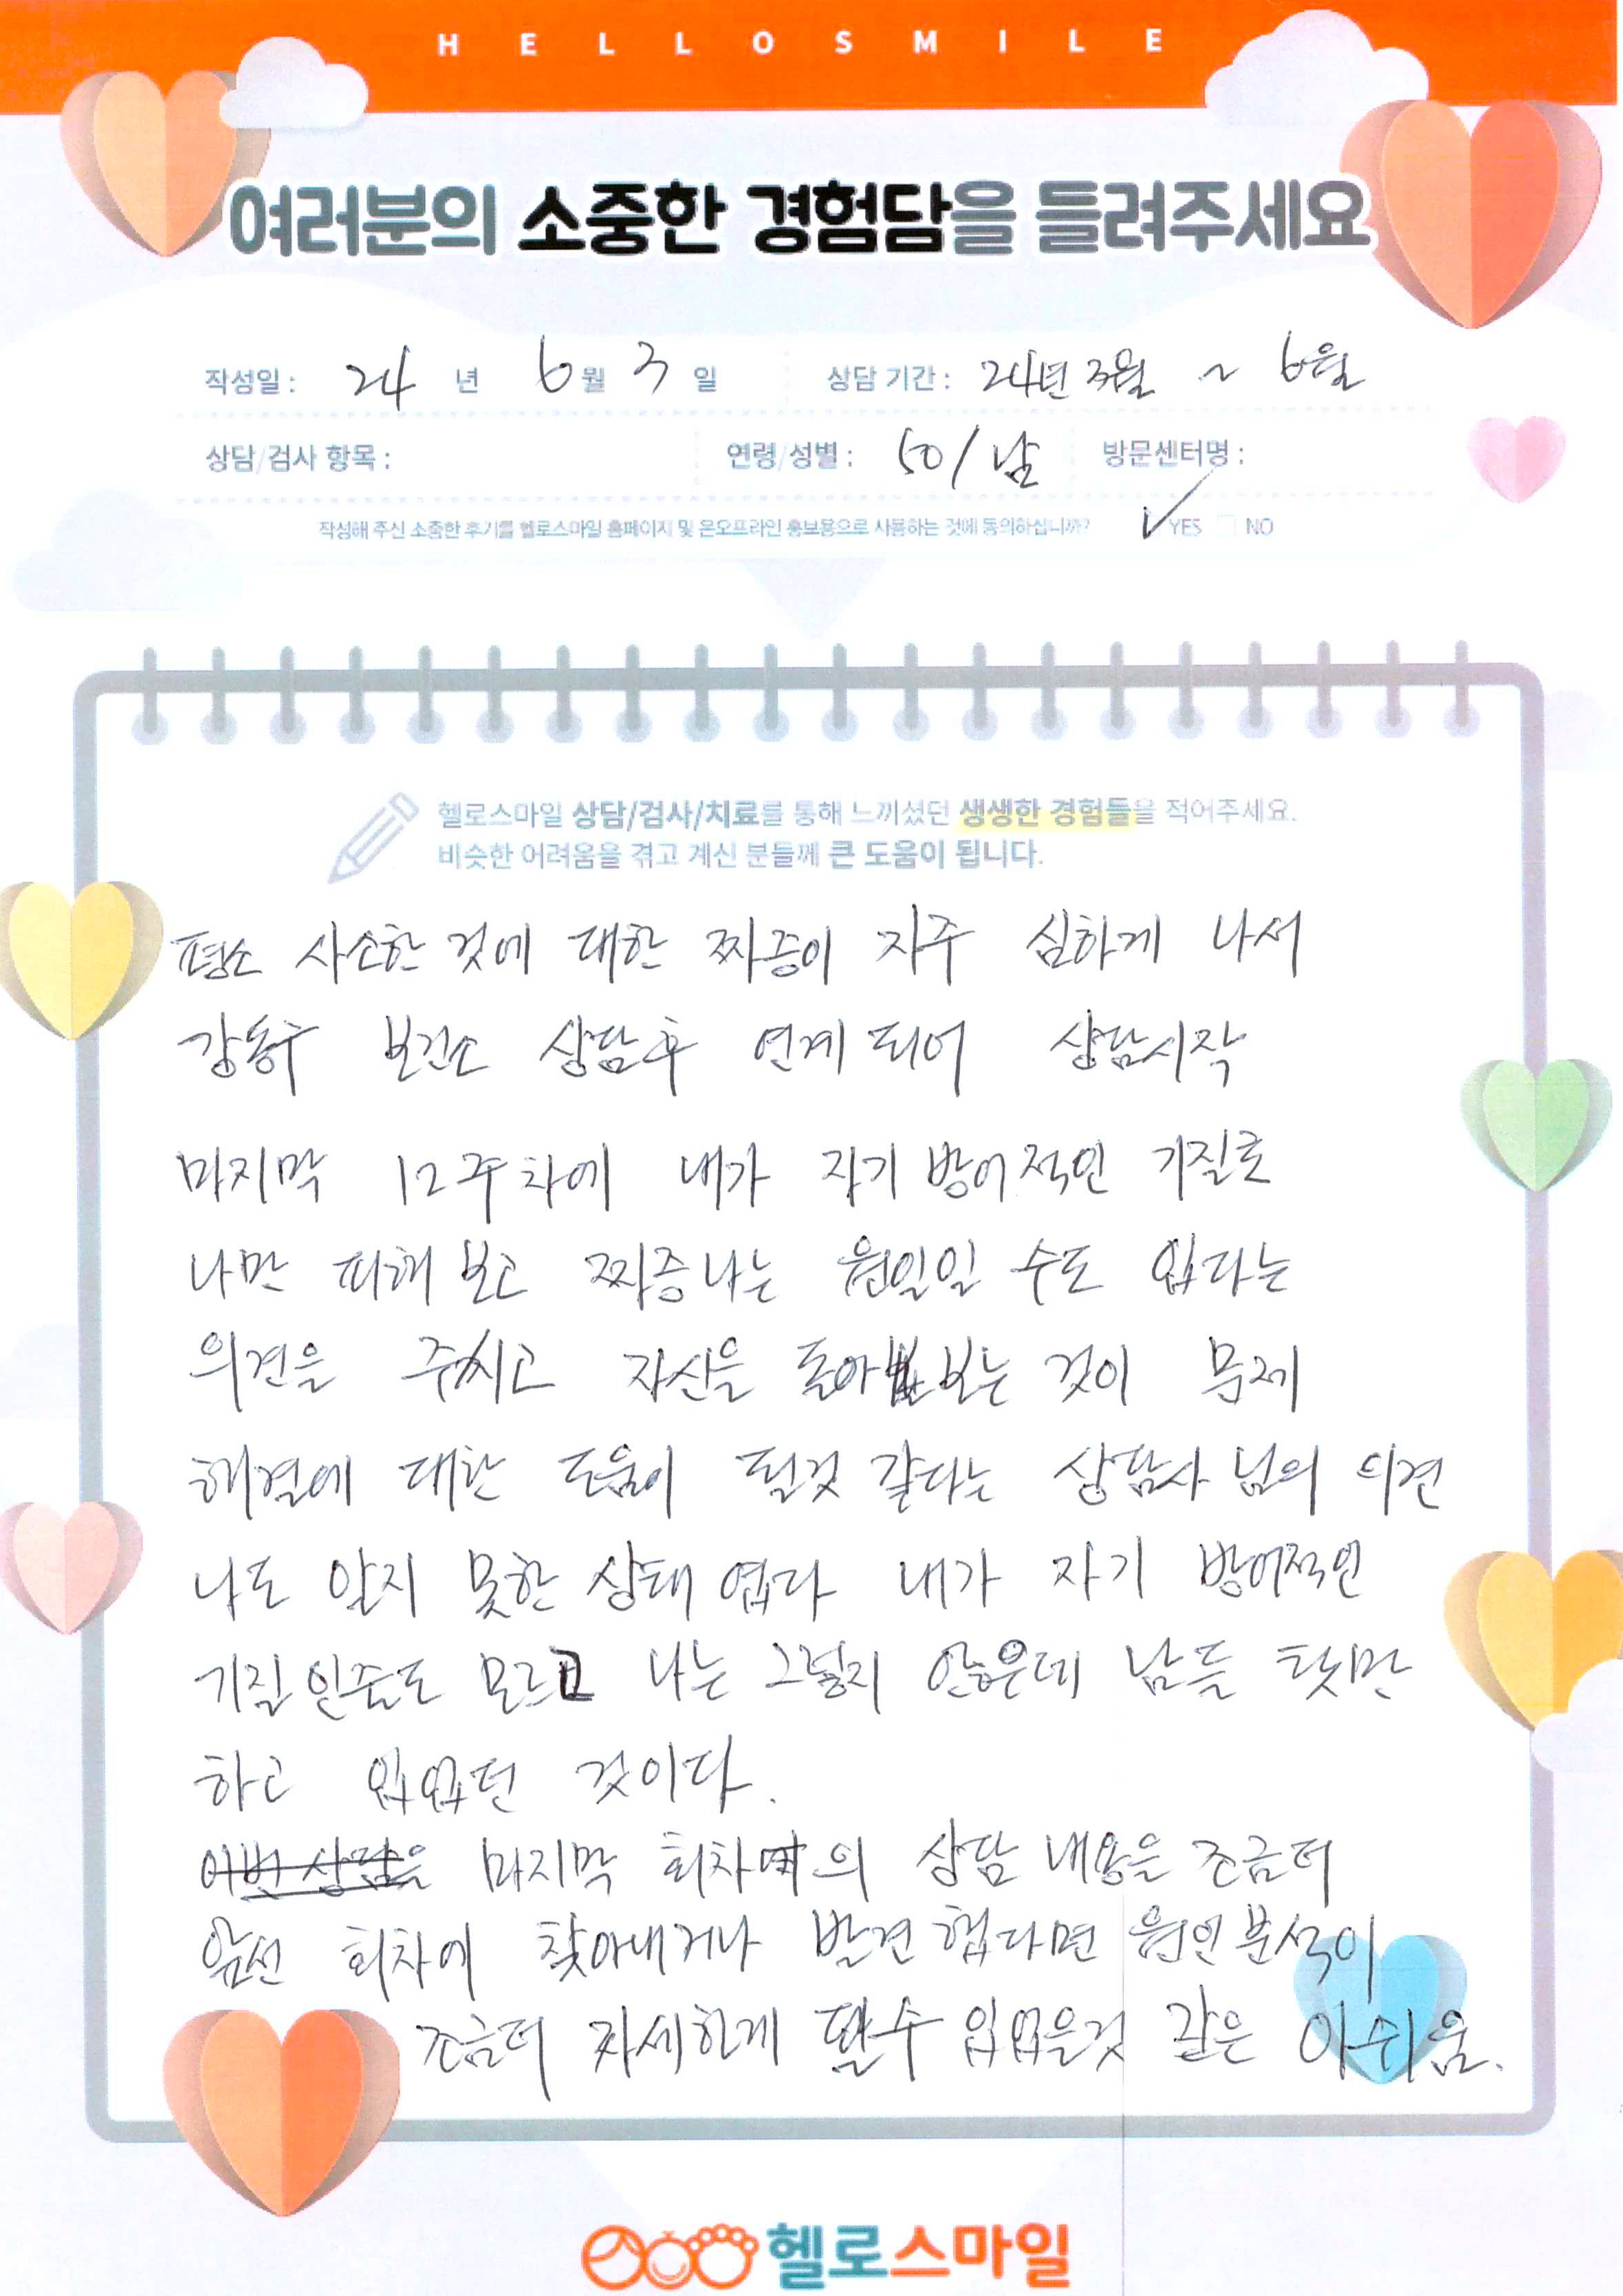 HELLOSMILE
여러분의 소중한 경험담을 들려주세요
작성일 : 24 년 6 월 3 일 상담 기간 : 24년 3월 ~ 6월
상담/검사 항목 : 연령/성별 : 50/남 방문센터명 :
작성해 주신 소중한 후기를 헬로스마일 홈페이지 및 온오프라인 홍보용으로 사용하는 것에 동의하십니까? ✓ YES NO
헬로스마일 상담/검사/치료를 통해 느끼셨던 생생한 경험들을 적어주세요.
비슷한 어려움을 겪고 계신 분들께 큰 도움이 됩니다.
평소 사소한 것에 대한 짜증이 자주 심하게 나서
강동구 보건소 상담후 연계 되어 상담시작
마지막 12주차에 내가 자기 방어적인 기질로
나만 피해 보고 짜증나는 원인일 수도 있다는
의견을 주시고 자신을 돌아보는 것이 문제
해결에 대한 도움이 될것 같다는 상담사 님의 의견
나도 알지 못한 상태 였다 내가 자기 방어적인
기질 인줄도 모르고 나는 그렇지 않은데 남들 탓만
하고 있었던 것이다.
이번 상담을 마지막 회차의 상담 내용을 조금더
앞선 회차에 찾아내거나 발견 했다면 원인 분석이
조금더 자세하게 될수 있었을것 같은 아쉬움.
헬로스마일